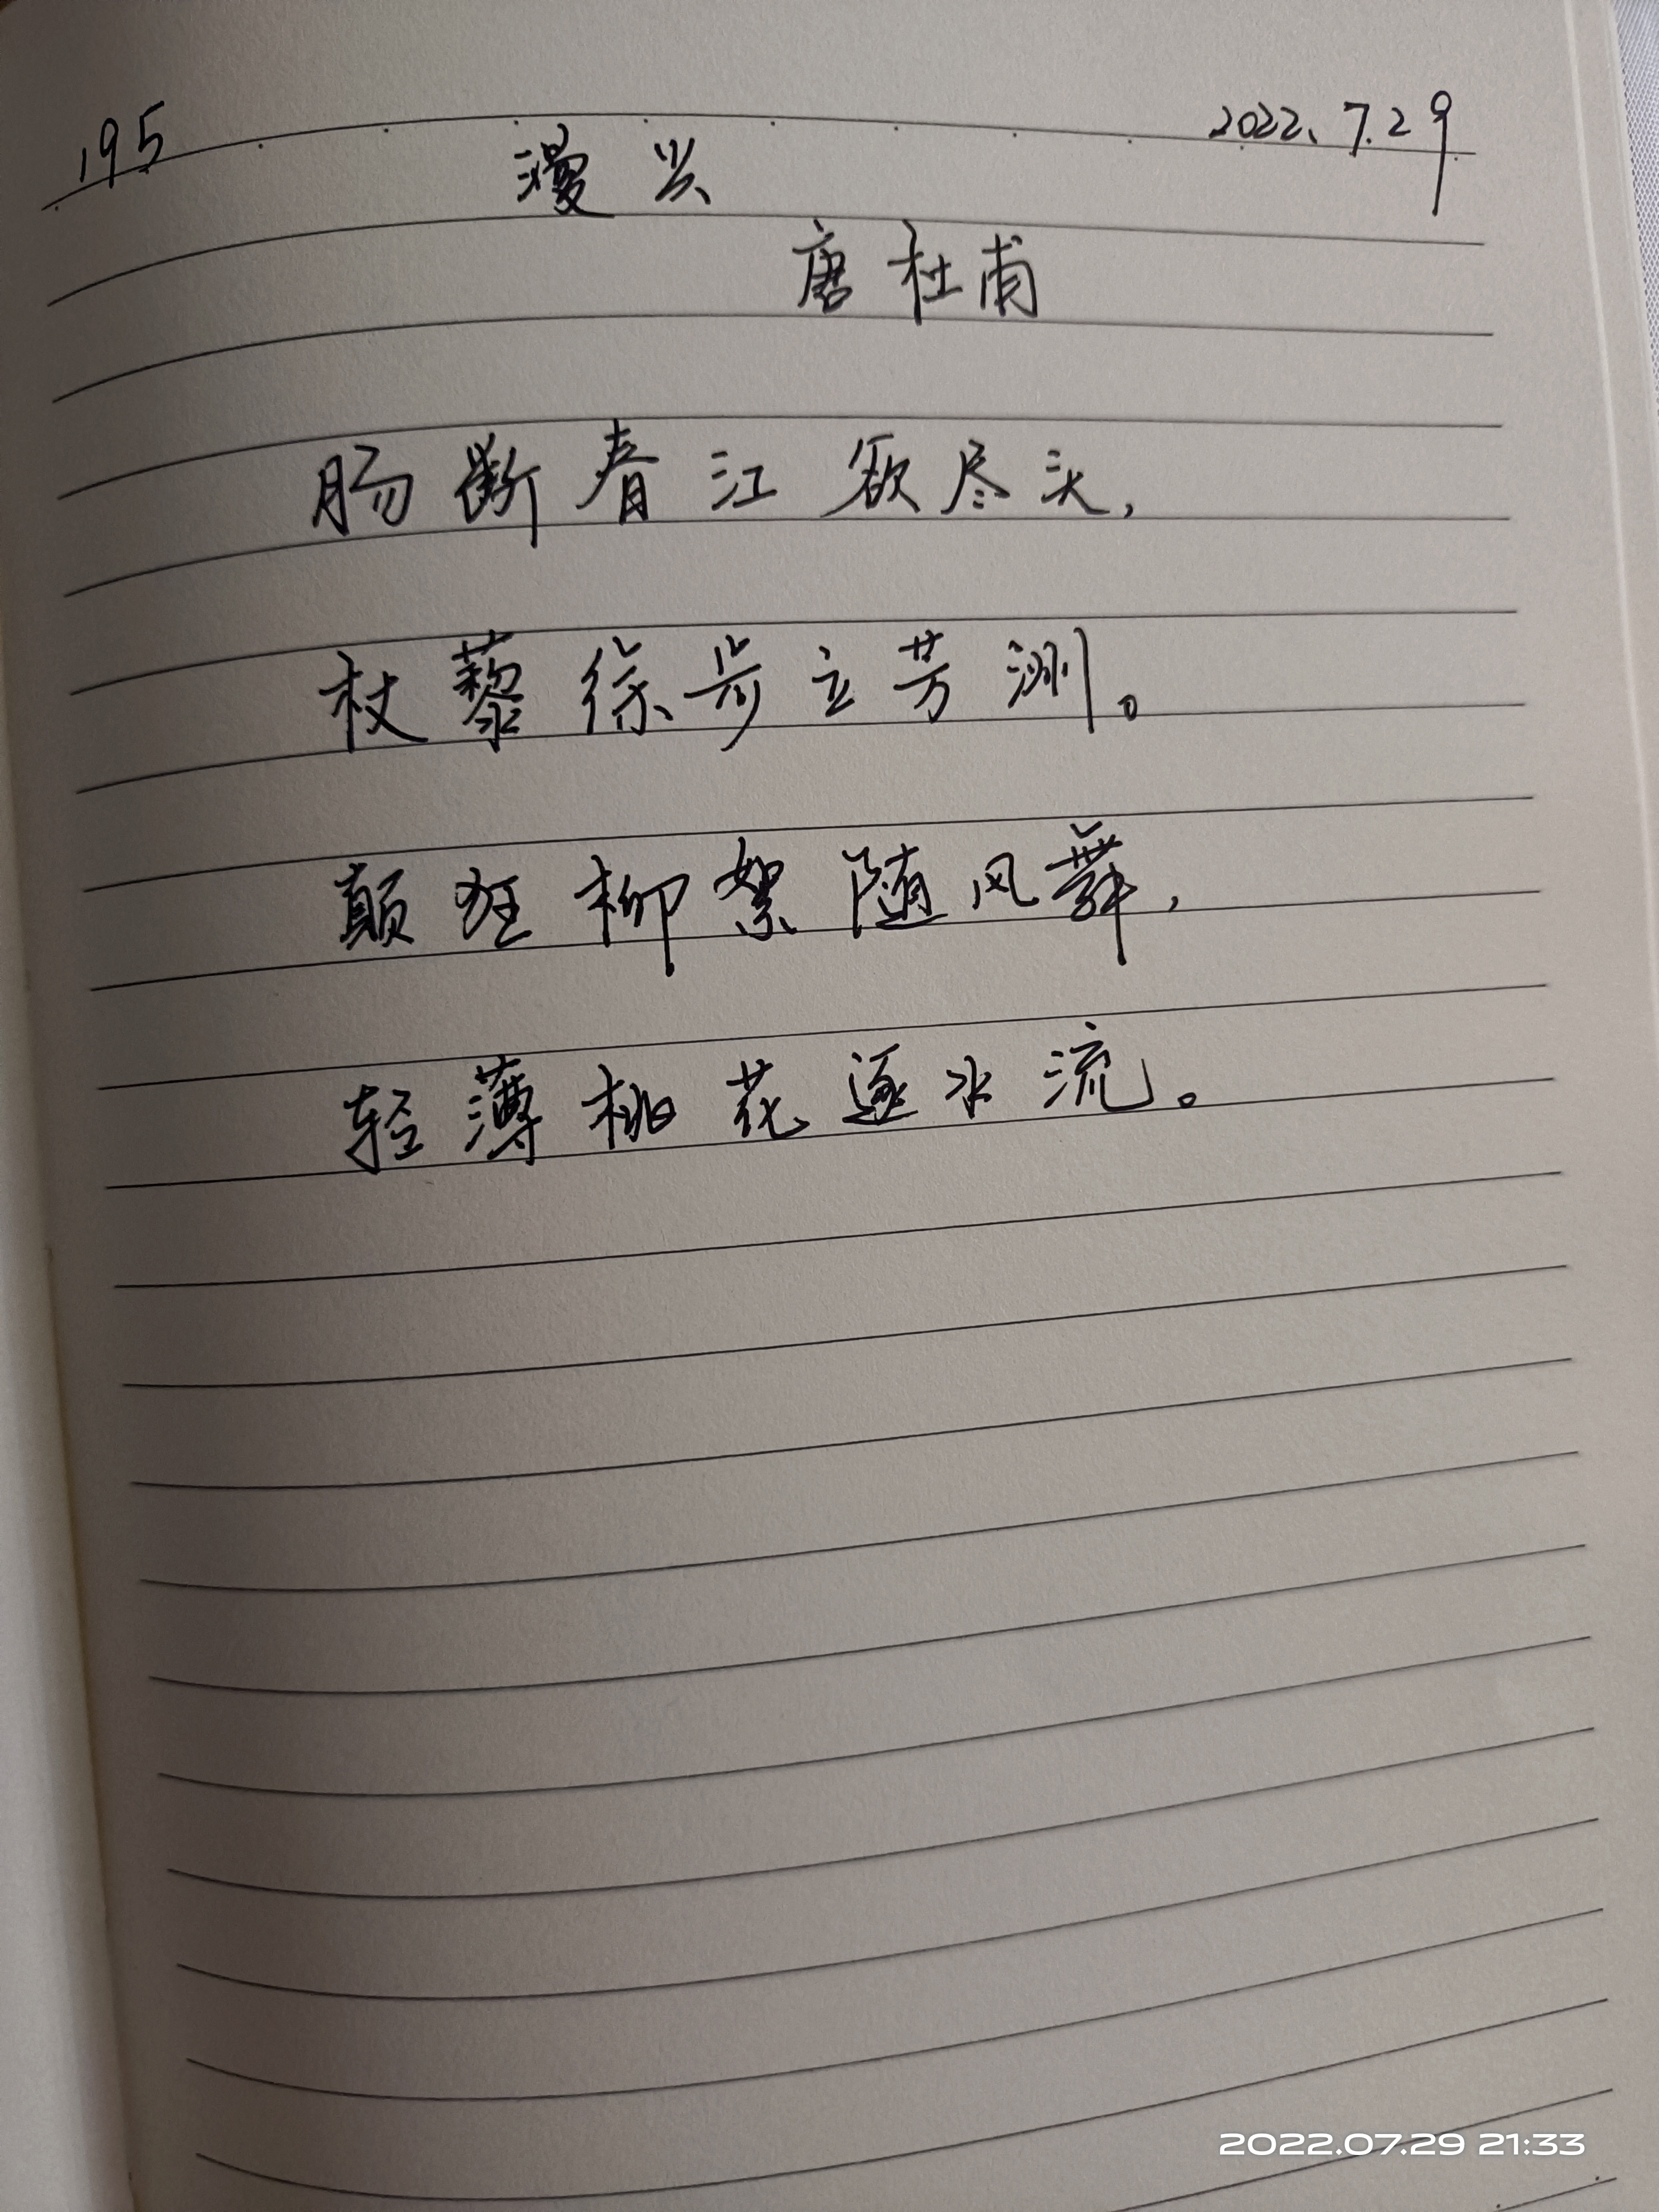 195
2022.7.29
漫兴
唐 杜甫
肠断春江欲尽头，
杖藜徐步立芳洲。
颠狂柳絮随风舞，
轻薄桃花逐水流。
2022.07.29 21:33